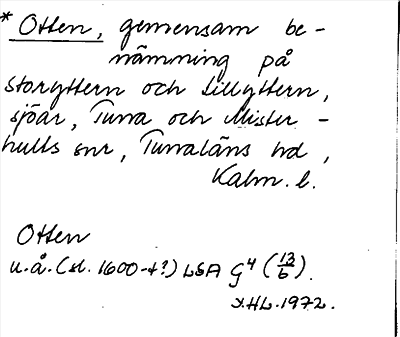 * Otten, gemensam be-
nämning på
Storyttern och Lillyttern,
sjöar, Tuna och Mister-
hults snr, Tunaläns hd,
Kalm. l.
Otten
u.å. (sl. 1600-t?) LSA G⁴ (13/6).
HL. 1972.